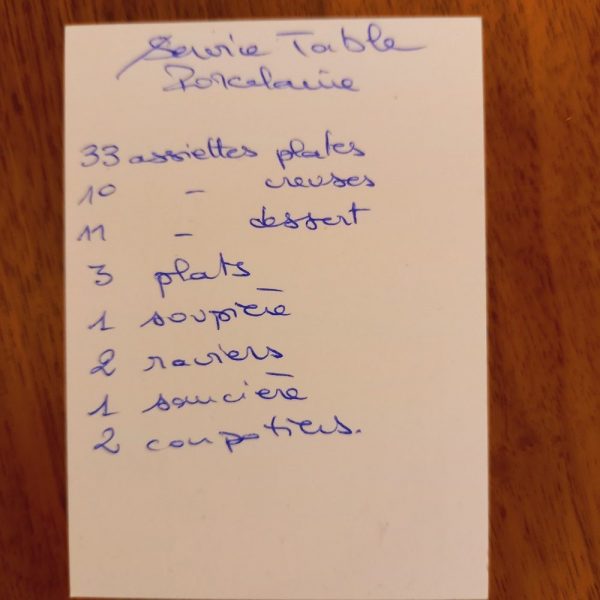 Service Table
Porcelaine
33 assiettes plates
10 - creuses
11 - dessert
3 plats
1 soupière
2 raviers
1 saucière
2 compotiers.